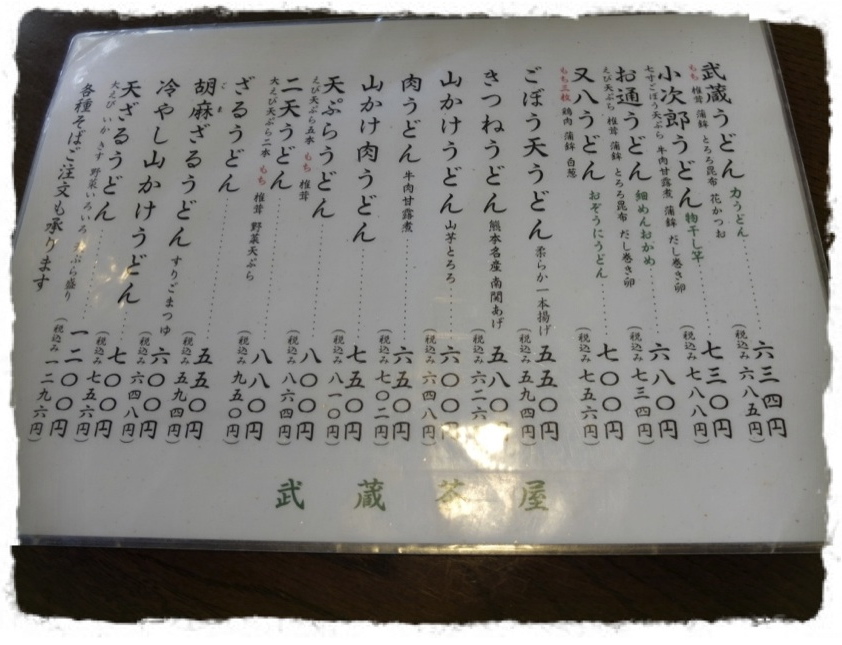 武蔵うどん 力うどん 六三四円
もち 椎茸 蒲鉾 とろろ昆布 花かつお (税込み 六八五円)
小次郎うどん 物干し竿 七三〇円
七寸ごぼう天ぷら 牛肉甘露煮 蒲鉾 だし巻き卵 (税込み 七八八円)
お通うどん 細めんおかめ 六八〇円
えび天ぷら 椎茸 蒲鉾 とろろ昆布 だし巻き卵 (税込み 七三四円)
又八うどん おぞうにうどん 七〇〇円
もち三枚 鶏肉 蒲鉾 白葱 (税込み 七五六円)
ごぼう天うどん 柔らか一本揚げ 五五〇円
(税込み 五九四円)
きつねうどん 熊本名産 南関あげ 五八〇円
(税込み 六二六円)
山かけうどん 山芋とろろ 六〇〇円
(税込み 六四八円)
肉うどん 牛肉甘露煮 六五〇円
(税込み 七〇二円)
山かけ肉うどん 七五〇円
(税込み 八一〇円)
天ぷらうどん 八〇〇円
えび天ぷら五本 もち 椎茸 (税込み 八六四円)
二天うどん 八八〇円
大えび天ぷら二本 もち 椎茸 野菜天ぷら (税込み 九五〇円)
ざるうどん 五五〇円
(税込み 五九四円)
ごま
胡麻ざるうどん すりごまつゆ 六〇〇円
(税込み 六四八円)
冷やし山かけうどん 七〇〇円
(税込み 七五六円)
天ざるうどん 一二〇〇円
大えび いか きす 野菜いろいろ ぷら盛り (税込み 一二九六円)
各種そばご注文も承ります
武蔵茶屋